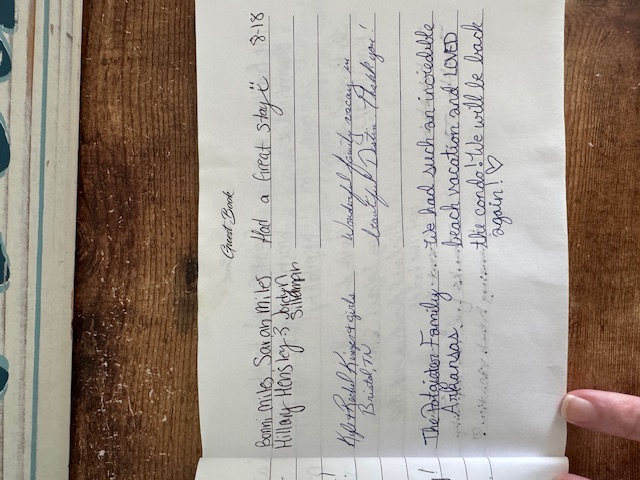 Guest Book
Bonni Miles, Sarah Miles Had a Great Stay 8-18
Hillary Hensley &
Kyle & Rachel & girls Wonderful family vacay in
Bristol, TN beautiful Destin. Thank you!
The Family We had such an incredible
Arkansas beach vacation and LOVED
the condo! We will be back
again!